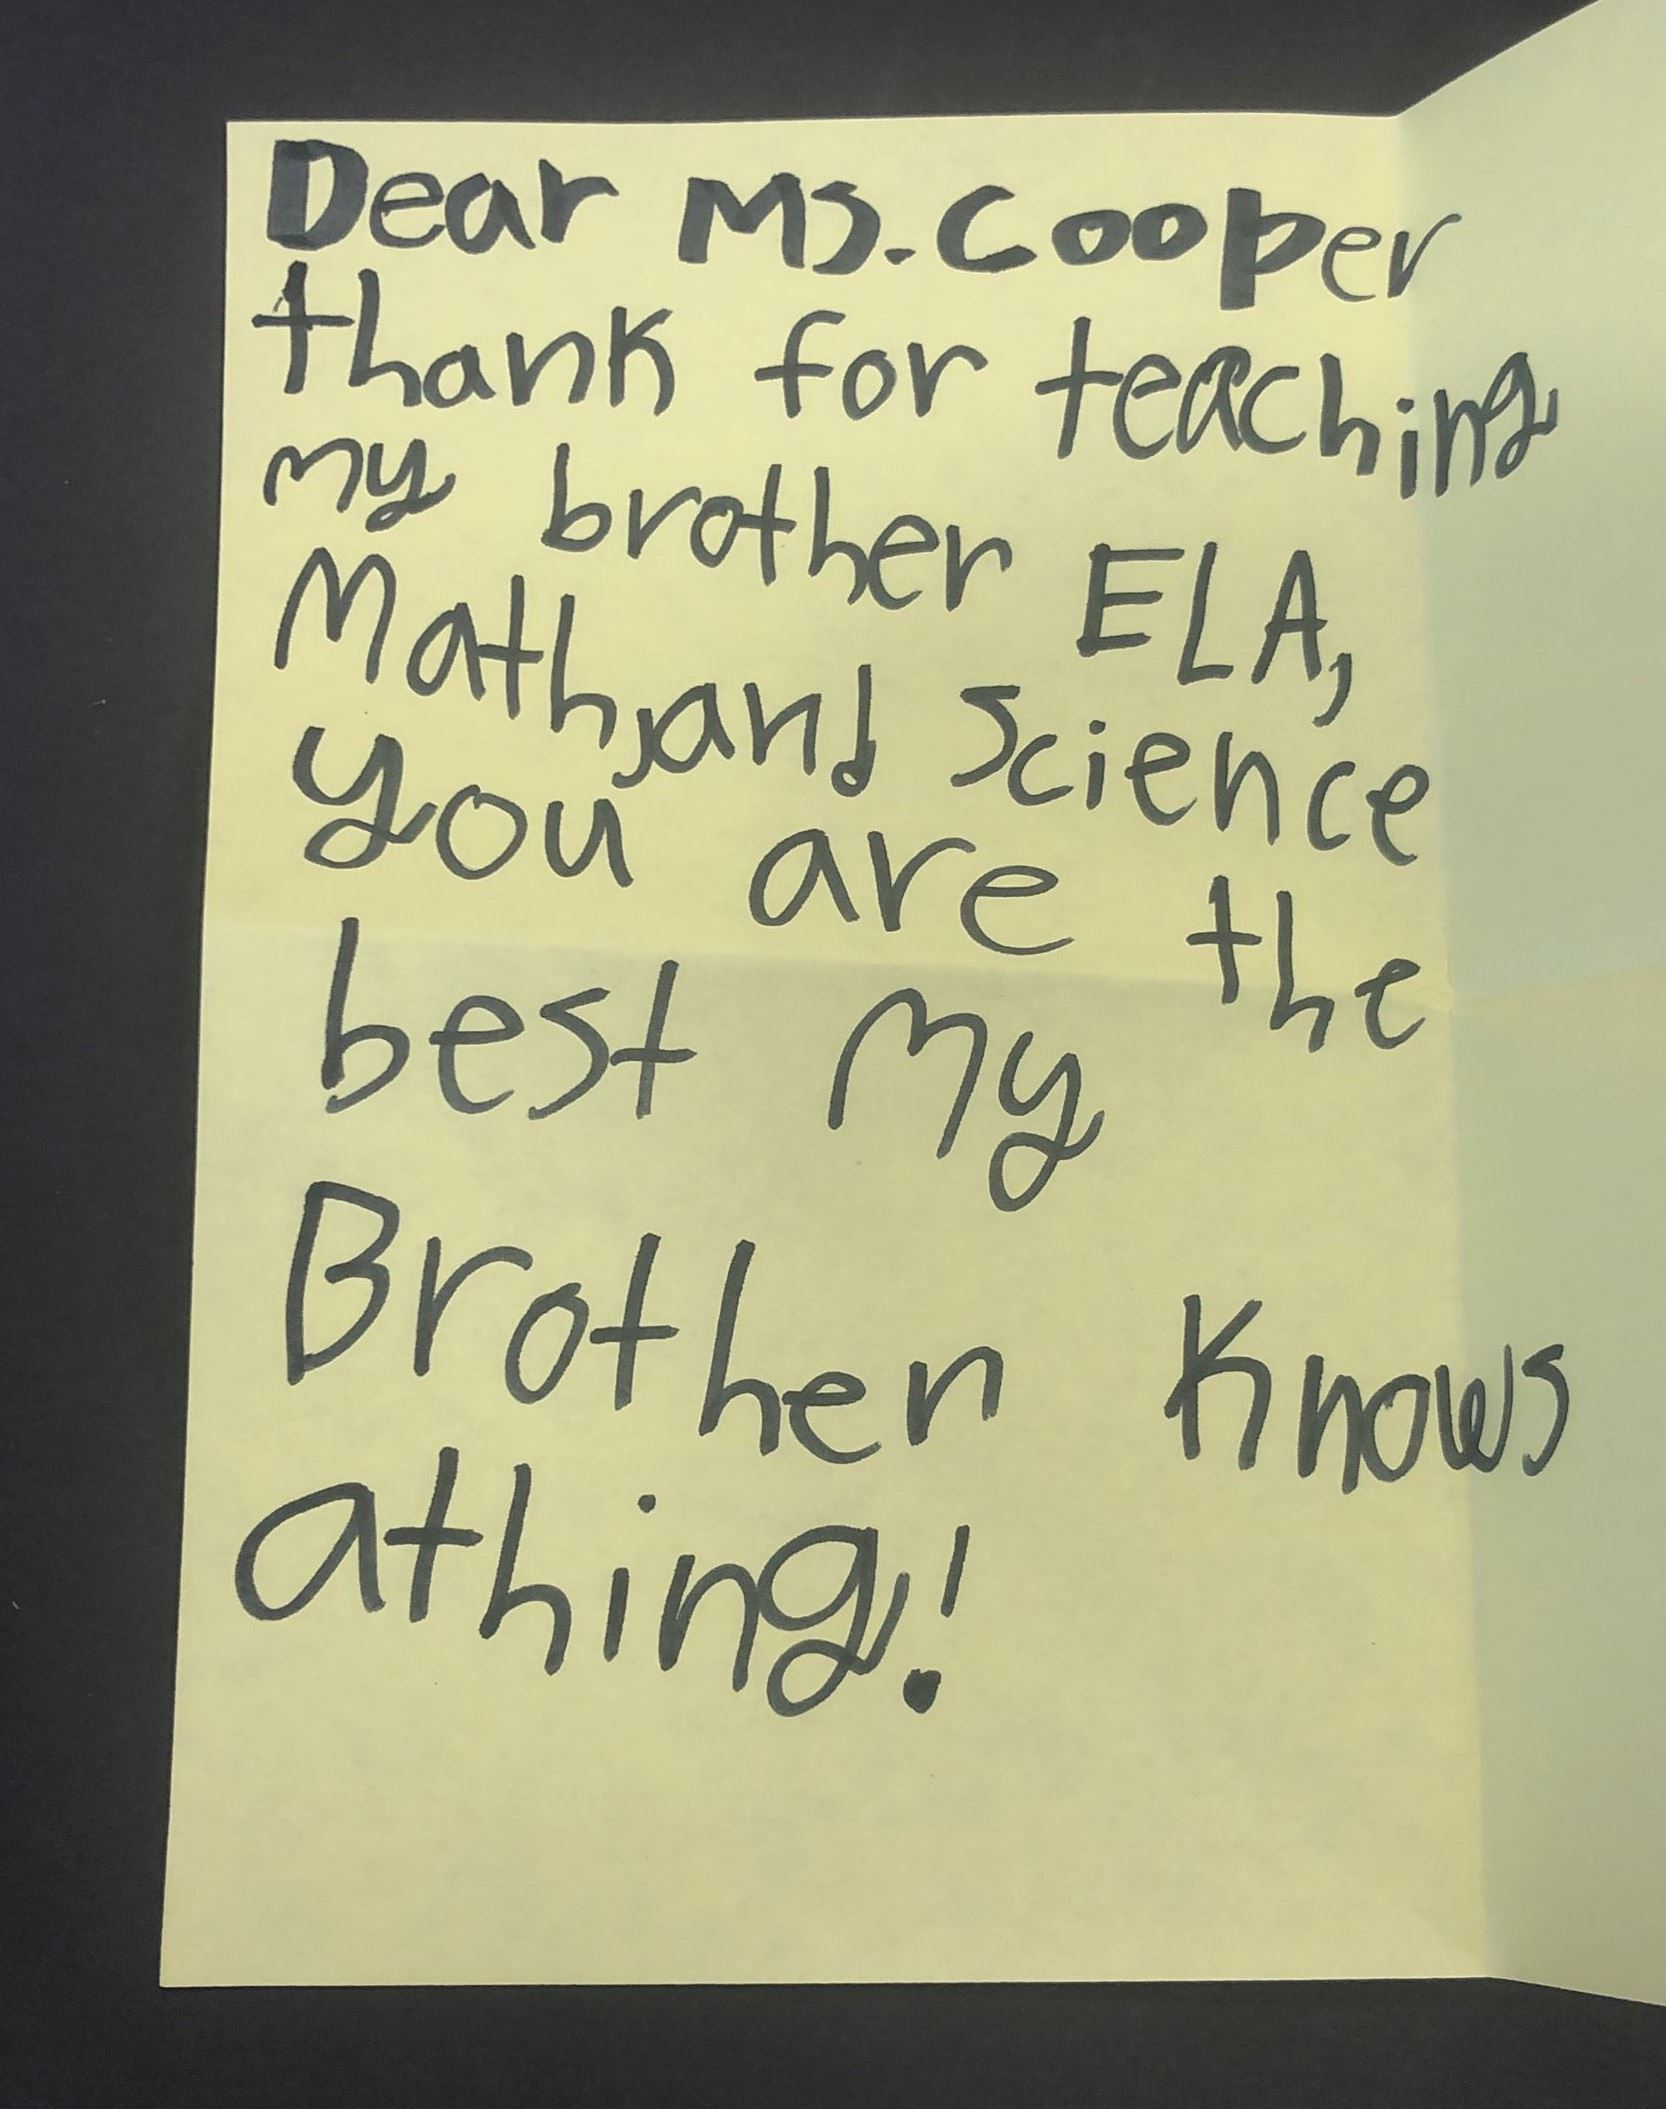 Dear Ms. Cooper
thank for teaching
my brother ELA,
Math, and Science
you are the
best my
Brother Knows
athing!